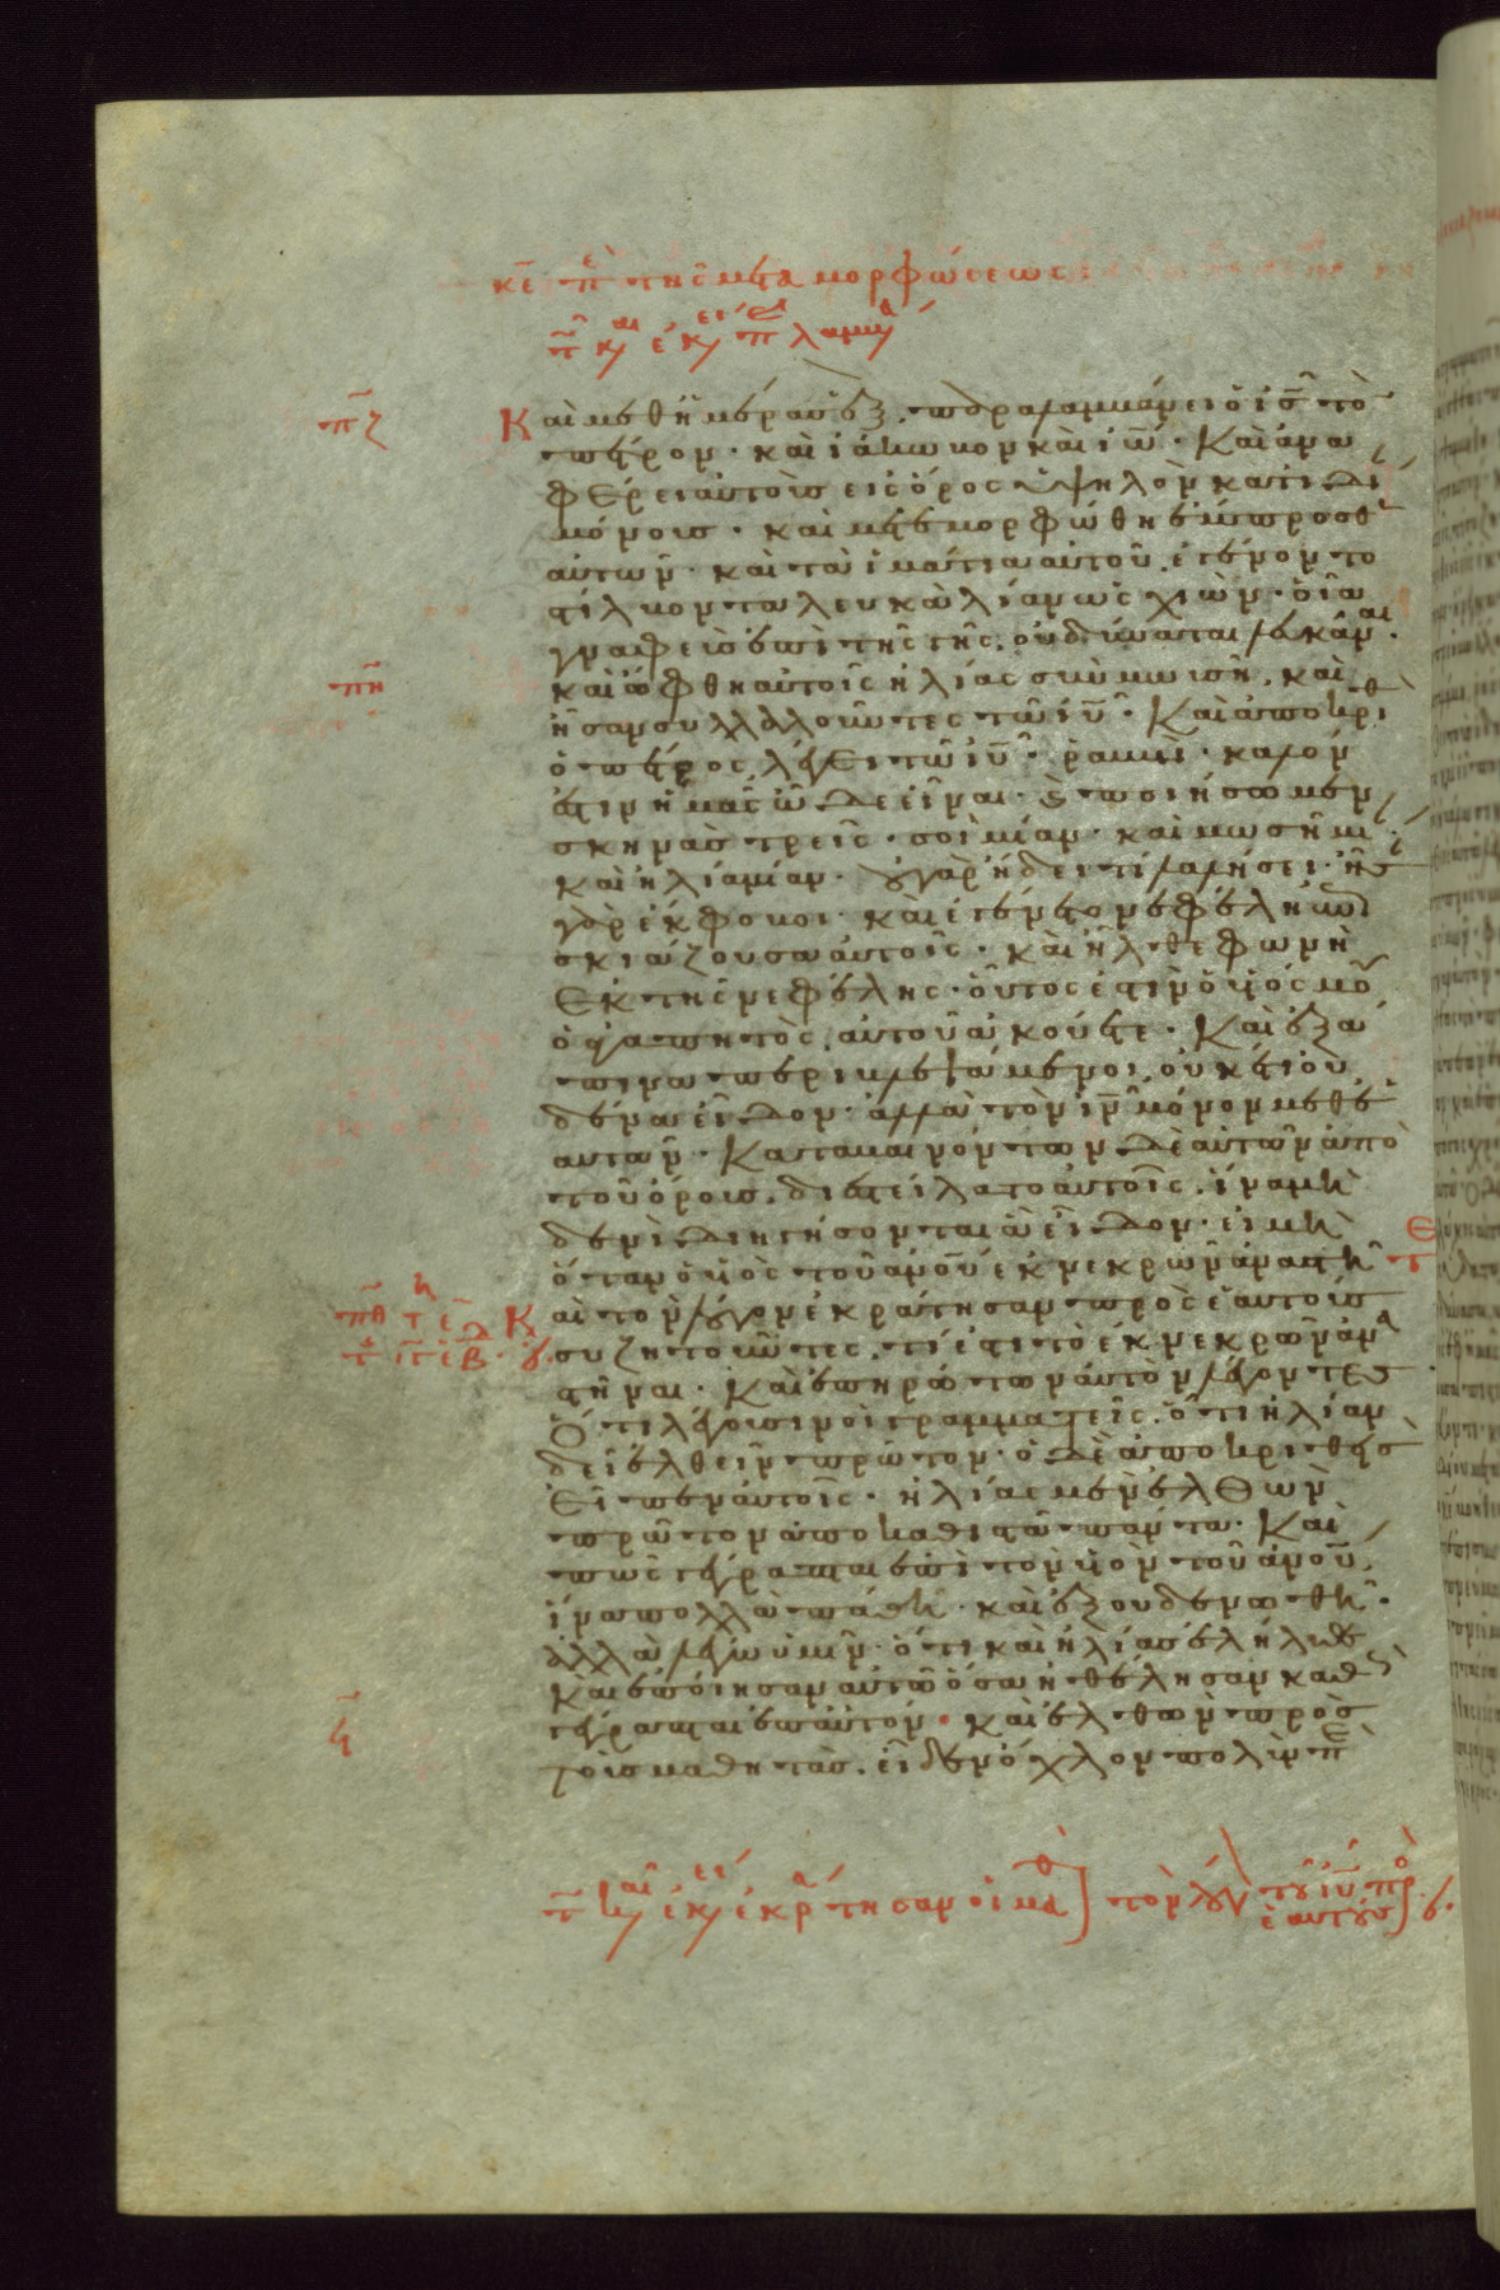 κε πε της μεταμορφώσεως
τω και εκει π λαμ
πζ Και μεθ ἡμέρας ἓξ. παραλαμβάνει ὁ ις τὸν
πέτρον. καὶ ἰάκωβον καὶ ἰω. Καὶ ἀνα
φέρει αὐτοὺς εἰς ὄρος ὑψηλὸν κατ ιδί
μόνους. καὶ μετεμορφώθη ἔμπροσθ
αὐτῶν. καὶ τὰ ἱμάτια αὐτοῦ. ἐγένοντο
στίλβοντα λευκὰ λίαν ὡς χιὼν. οἷα
γναφεὺς ἐπὶ τῆς γῆς. οὐ δύναται λευκάναι.
πη καὶ ὤφθη αὐτοῖς ἠλίας σὺν μωσῆ. καὶ
ἦσαν συλλαλοῦντες τῶ ιυ. Καὶ ἀποκριθ
ὁ πέτρος λέγει τῶ ιυ. ραββὶ. καλόν
ἐστιν ἡμᾶς ὧδε εἶναι. καὶ ποιήσωμεν
σκηνὰς τρεῖς. σοὶ μίαν. καὶ μωσῆ μί
καὶ ἠλία μίαν. οὐ γὰρ ἤδει τί λαλήσει. ἦς
γὰρ ἔκφοβοι. καὶ ἐγένετο νεφέλη ἐπι
σκιάζουσα αὐτοῖς. καὶ ἦλθε φωνὴ
ἐκ τῆς νεφέλης. οὗτος ἐστιν ὁ υἱός μου
ὁ ἀγαπητὸς. αὐτοῦ ἀκούετε. Καὶ ἐξά
πινα περιβλεψάμενοι. οὐκέτι οὐ
δένα εἶδον. ἀλλὰ τὸν ιν μόνον μεθε
αυτῶν. Καταβαινόντων δὲ αὐτῶν ἀπὸ
τοῦ ὄρους. διεστείλατο αὐτοῖς. ἵνα μη
δενὶ διηγήσονται ἃ εἶδον. εἰ μὴ
ὅταν ὁ υἱὸς τοῦ ανου ἐκ νεκρῶν ἀναστῆ
πθ Καὶ τὸν λόγον ἐκράτησαν πρὸς ἑαυτοὺς
συζητοῦντες. τί ἐστι τὸ ἐκ νεκρῶν ἀνα
στῆναι. Καὶ ἐπηρώτων αὐτὸν λέγοντες
Ὅτι λέγουσιν οἱ γραμματεῖς. ὅτι ἠλίαν
δεῖ ἐλθεῖν πρῶτον. ὁ δὲ ἀποκριθεὶς
Εἶπεν αὐτοῖς. ἠλίας μὲν ἐλθὼν
πρῶτον ἀποκαθιστᾶ πάντα. Καὶ
πῶς γέγραπται ἐπὶ τὸν υἱὸν τοῦ ανου.
ἵνα πολλὰ πάθη. καὶ ἐξουδενωθῆ.
ἀλλὰ λέγω ὑμῖν. ὅτι καὶ ἠλίας ἐλήλυθε
καὶ ἐποίησαν αὐτῶ ὅσα ἠθέλησαν καθὼ
γέγραπται ἐπ αὐτόν. καὶ ἐλθὼν πρὸς
τοὺς μαθητὰς. εἶδεν ὄχλον πολὺν πε
τω και εκει ἐκράτησαν οἱ μαθ τὸν λόγον του ιυ προ
ἑαυτους